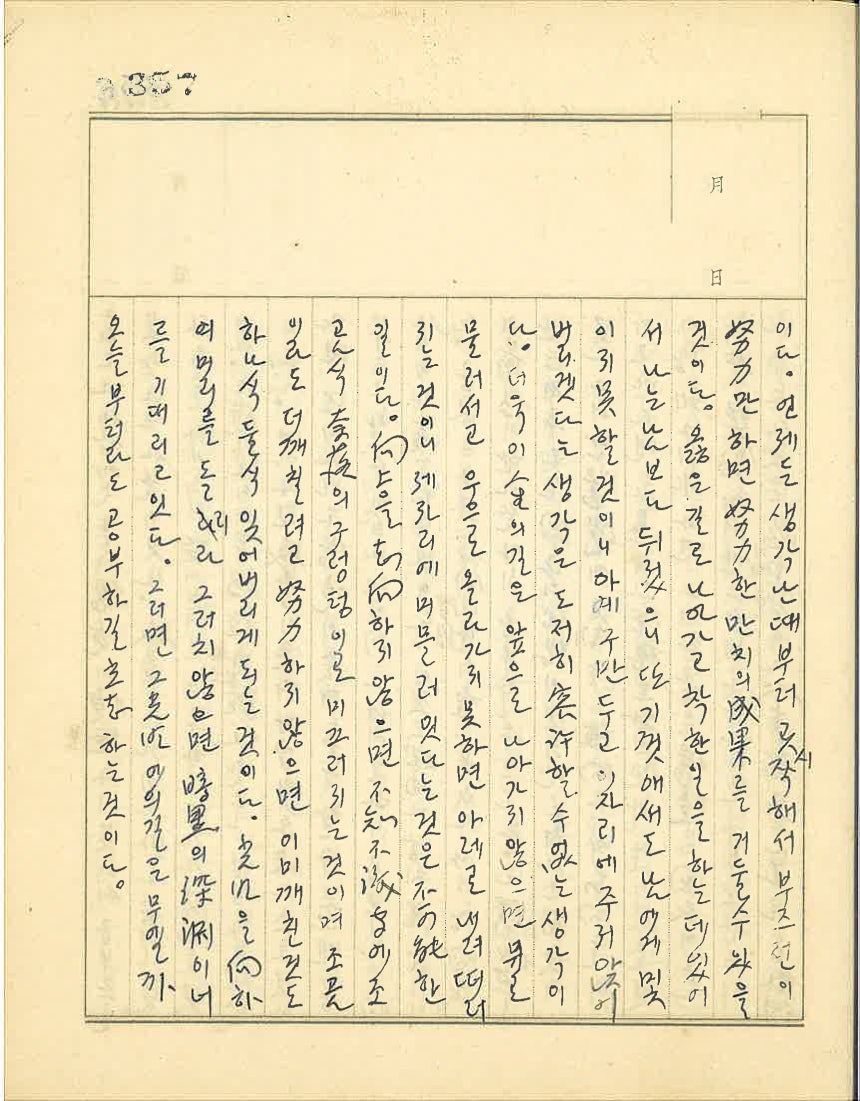 357
月
日
이다. 언제든 생각난 때부터 곳 시작해서 부즈런이
努力만 하면 努力한 만치의 成果를 거둘수 있을
것이다. 옳은 길로 나아가고 착한 일을 하는데 있어
서 나는 남보다 뒤젔으니 또 기껏 애써도 남에게 및
이지 못할 것이니 아제 구만두고 이자리에 주저앉어
버리겟다는 생각은 도저히 容許할 수 없는 생각이
다. 더욱이 人生의 길은 앞으로 나아가지 않으면 뒤로
물러서고 우으로 올라가지 못하면 아레로 내려떠러
지는 것이니 제자리에 머물러 있다는 것은 不可能한
일이다. 向上을 志向하지 않으면 不知不識중에 조
곰식 奈落의 구렁텅이로 미끄러지는 것이며 조곰
일도 더 깨칠려고 努力하지 않으면 이미 깨친것도
하나식 둘식 잊어버리게 되는 것이다. 光明을 向하
여 머리를 돌리라 그러치 않으면 暗黑의 深淵이 너
를 기대리고 있다. 그러면 그 光明에의 길은 무엘까
오늘부터라도 공부하길 시작하는것이다.